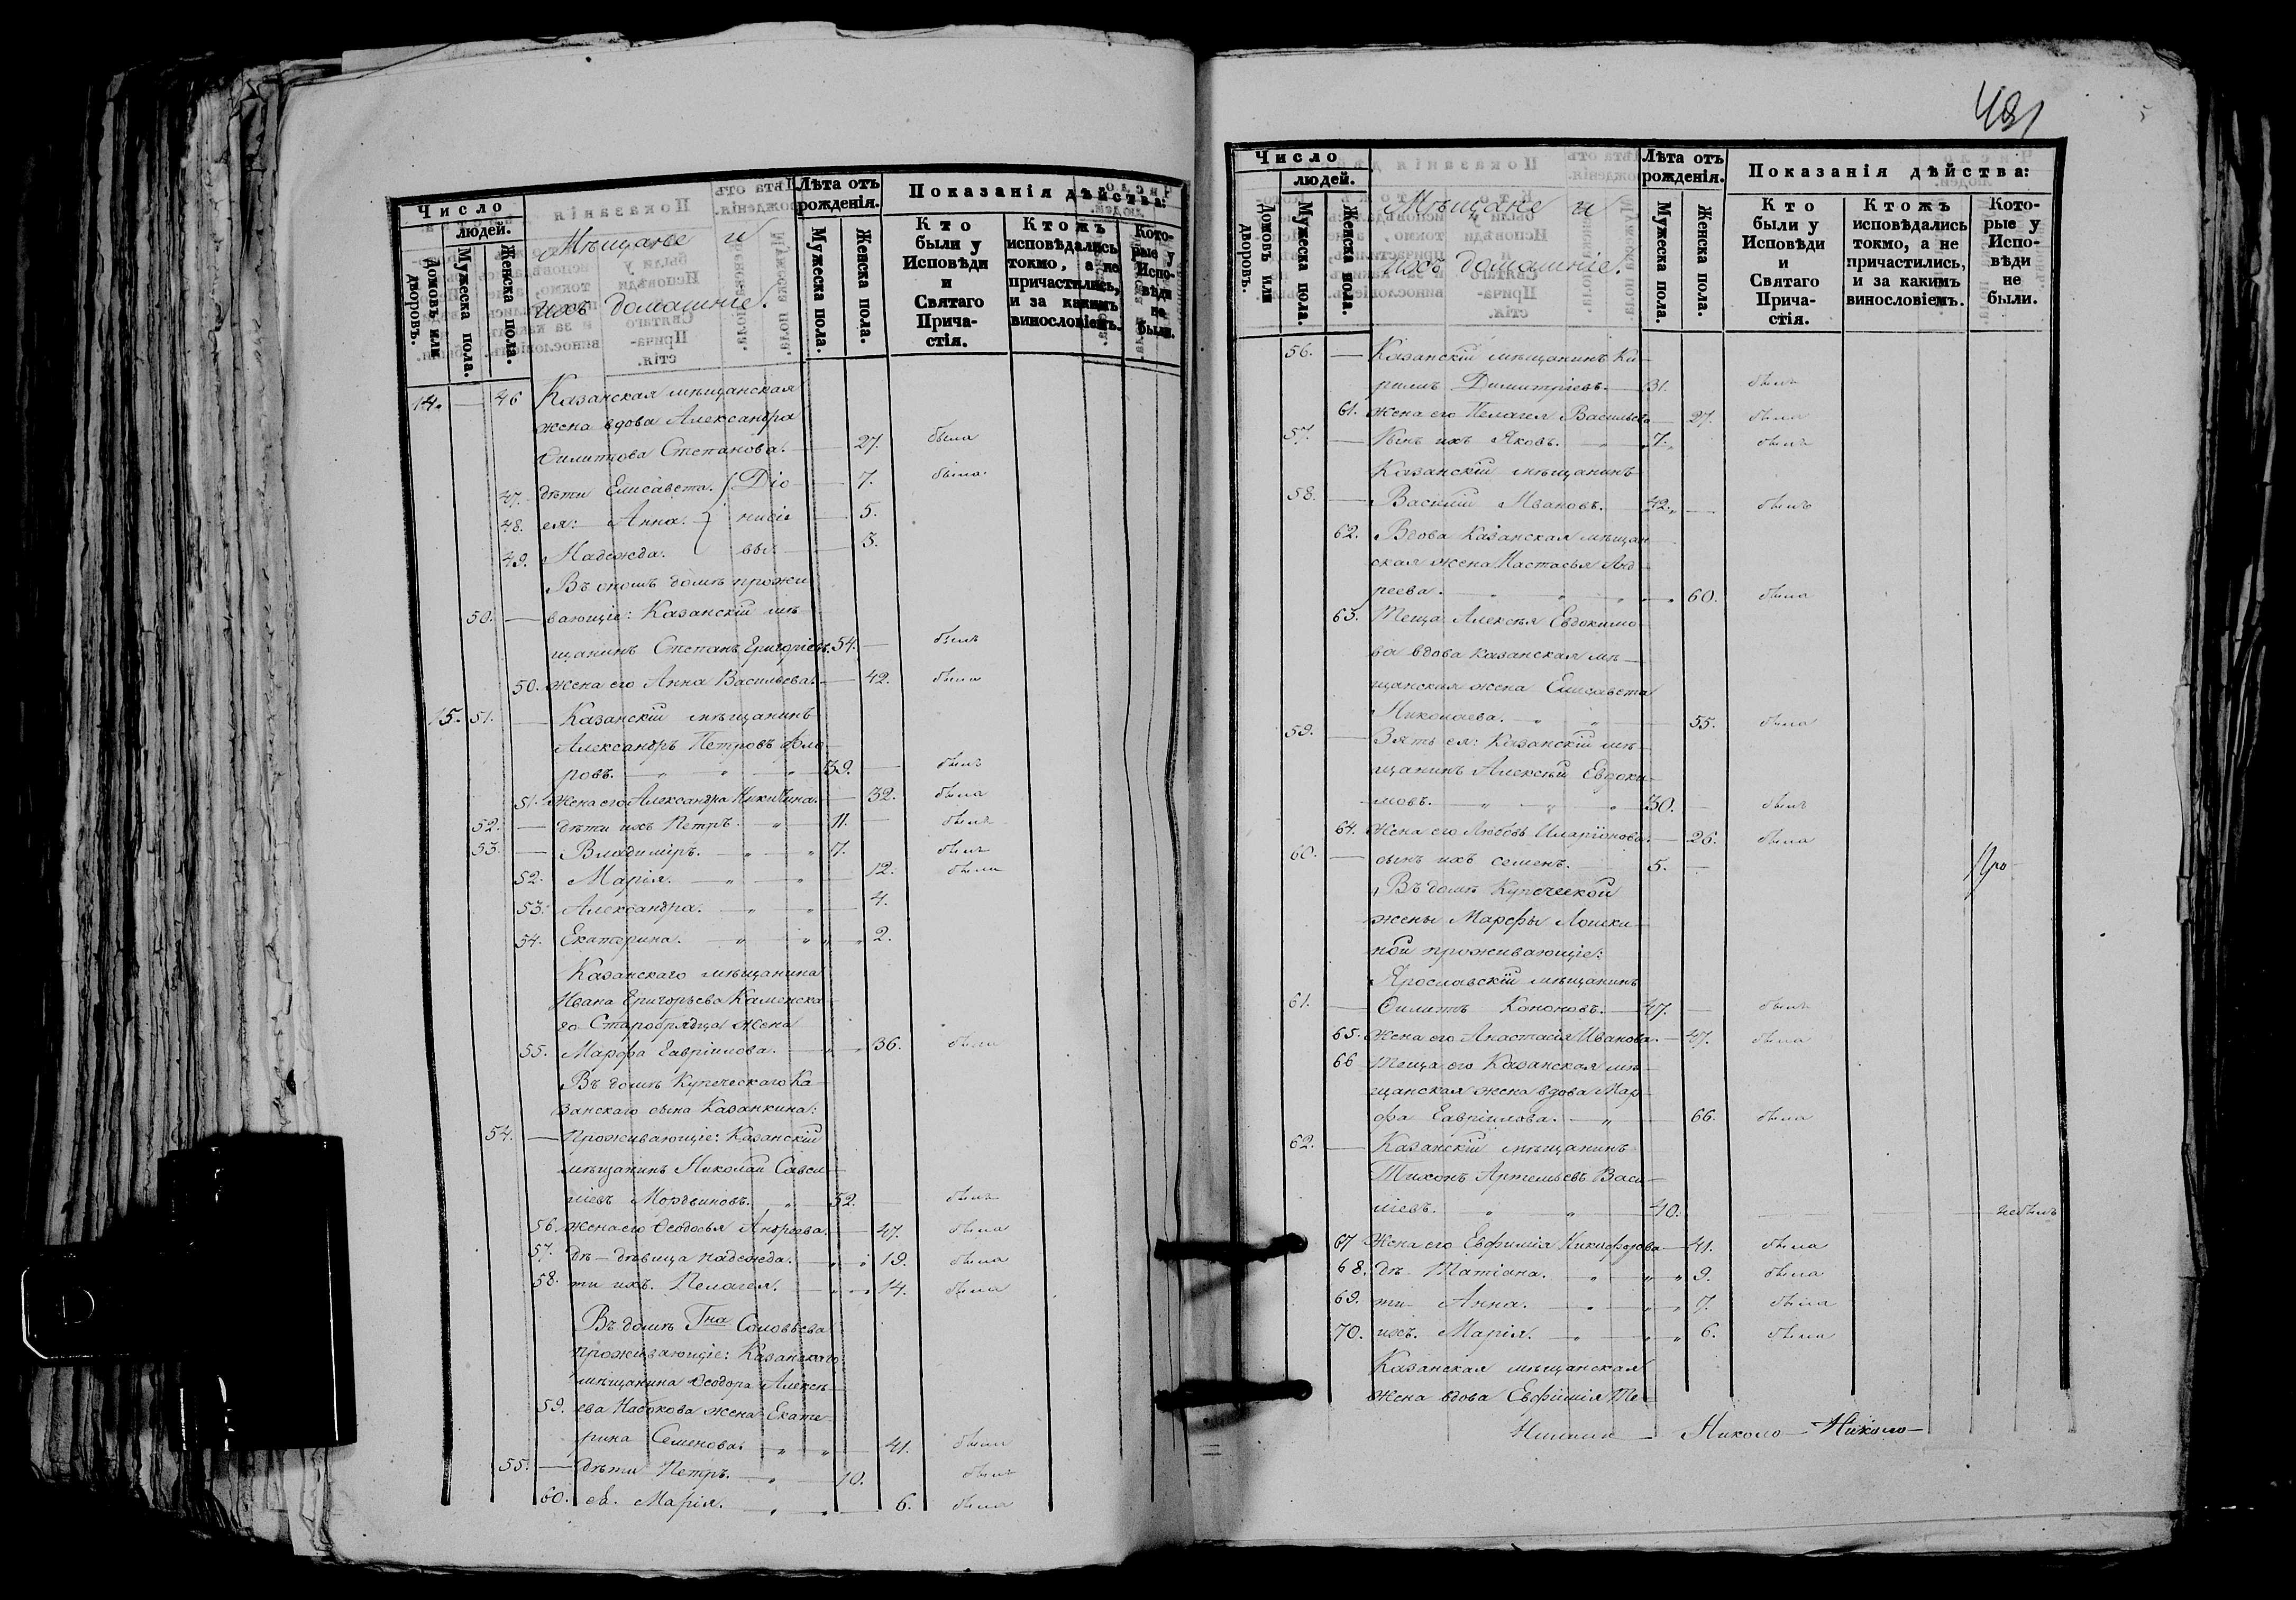 Число
людей.
Домовъ или дворовъ.
Мужеска пола.
Женска пола.
Мѣщане и
ихъ домашніе.
Лѣта отъ рожденія.
Мужеска пола.
Женска пола.
Показанія дѣйства:
Кто были у Исповѣди и Святаго Прича-стія.
Ктожъ исповѣдались токмо, а не причастились, и за какимъ винословіемъ.
Кото-рые у Испо-вѣди не были.
14. — 46 Казанская мѣщанская
жена вдова Александра
Филиппова Степанова. — 27. была
47. дѣти Елисавета. Діо — 7. была
48. ея: Анна. нисіе — 5.
49. Надежда. вы — 3.
Въ ономъ домѣ прожи
50. — вающіе: Казанскій мѣ
щанинъ Степанъ Григорьевъ. 54. — былъ
50. жена его Анна Васильева. — 42. была
15. 51. — Казанскій мѣщанинъ
Александръ Петровъ Фло
ровъ. — 39. — былъ
51. Жена его Александра Никитина. — 32. была
52. — дѣти ихъ Петръ. 11. — былъ
53. — Владимиръ. 7. былъ
52. Марія. 12. была
53. Александра. 4.
54. Екатерина. 2.
Казанскаго мѣщанина
Ивана Григорьева Каменска
го Старобрядца жена
55. Марфа Гавріилова. 36. была
Въ домѣ Купеческаго Ка
занскаго сына Казанкина:
54. — Проживающіе: Казанскій
мѣщанинъ Николай Савел
іевъ Мордвиновъ. 52. — былъ
56. Жена его Ѳеодосья Андреева. — 47. была
57. дѣ — дѣвица Надежда. 19. была
58. ти ихъ. Пелагея. 14. была
Въ домѣ Гна Соловьева
проживающіе: Казанскаго
мѣщанина Ѳеодора Алексѣ
59. ева Набокова жена Екате
рина Семенова. 41. была
55. — дѣти Петръ. 10. былъ
60. ея. Марія. 6. была
481
Число
людей.
Домовъ или дворовъ.
Мужеска пола.
Женска пола.
Мѣщане и
ихъ домашніе.
Лѣта отъ рожденія.
Мужеска пола.
Женска пола.
Показанія дѣйства:
Кто были у Исповѣди и Святаго Прича-стія.
Ктожъ исповѣдались токмо, а не причастились, и за какимъ винословіемъ.
Кото-рые у Испо-вѣди не были.
56. — Казанскій мѣщанинъ Ки
рилъ Димитріевъ. 31. былъ
61. Жена его Пелагея Васильева — 27. была
57. — Сынъ ихъ Яковъ. 7. былъ
Казанскій мѣщанинъ
58. — Василій Ивановъ. 42. — былъ
62. Вдова Казанская мѣщан
ская жена Настасья Анд
реева. 60. была
63. Теща Алексѣя Евдокимо
ва вдова казанская мѣ
щанская жена Елисавета
Николаева. 55. была
59. — Зять ея: Казанскій мѣ
щанинъ Алексѣй Евдоки
мовъ. 30. — былъ
64. Жена его Любовь Иларіонова. — 26. была
60. — сынъ ихъ Семенъ. 5. —
Въ домѣ Купеческой
жены Марфы Ложки
ной проживающіе:
Ярославскій мѣщанинъ
61. — Филиппъ Кононовъ. 47. — былъ
65. Жена его Анастасія Иванова. — 47. была
66 Теща его Казанская мѣ
щанская жена вдова Мар
фа Гавріилова. — 66. была
62. — Казанскій мѣщанинъ
Тихонъ Артемьевъ Васи
ліевъ. 40. — небылъ
67 Жена его Евфимія Никифорова — 41. была
68. дѣ — Татіана. 9. была
69. ти — Анна. 7. была
70. ихъ. Марія. 6. была
Казанская мѣщанская
жена вдова Евфимія Те
Николо — Николо —